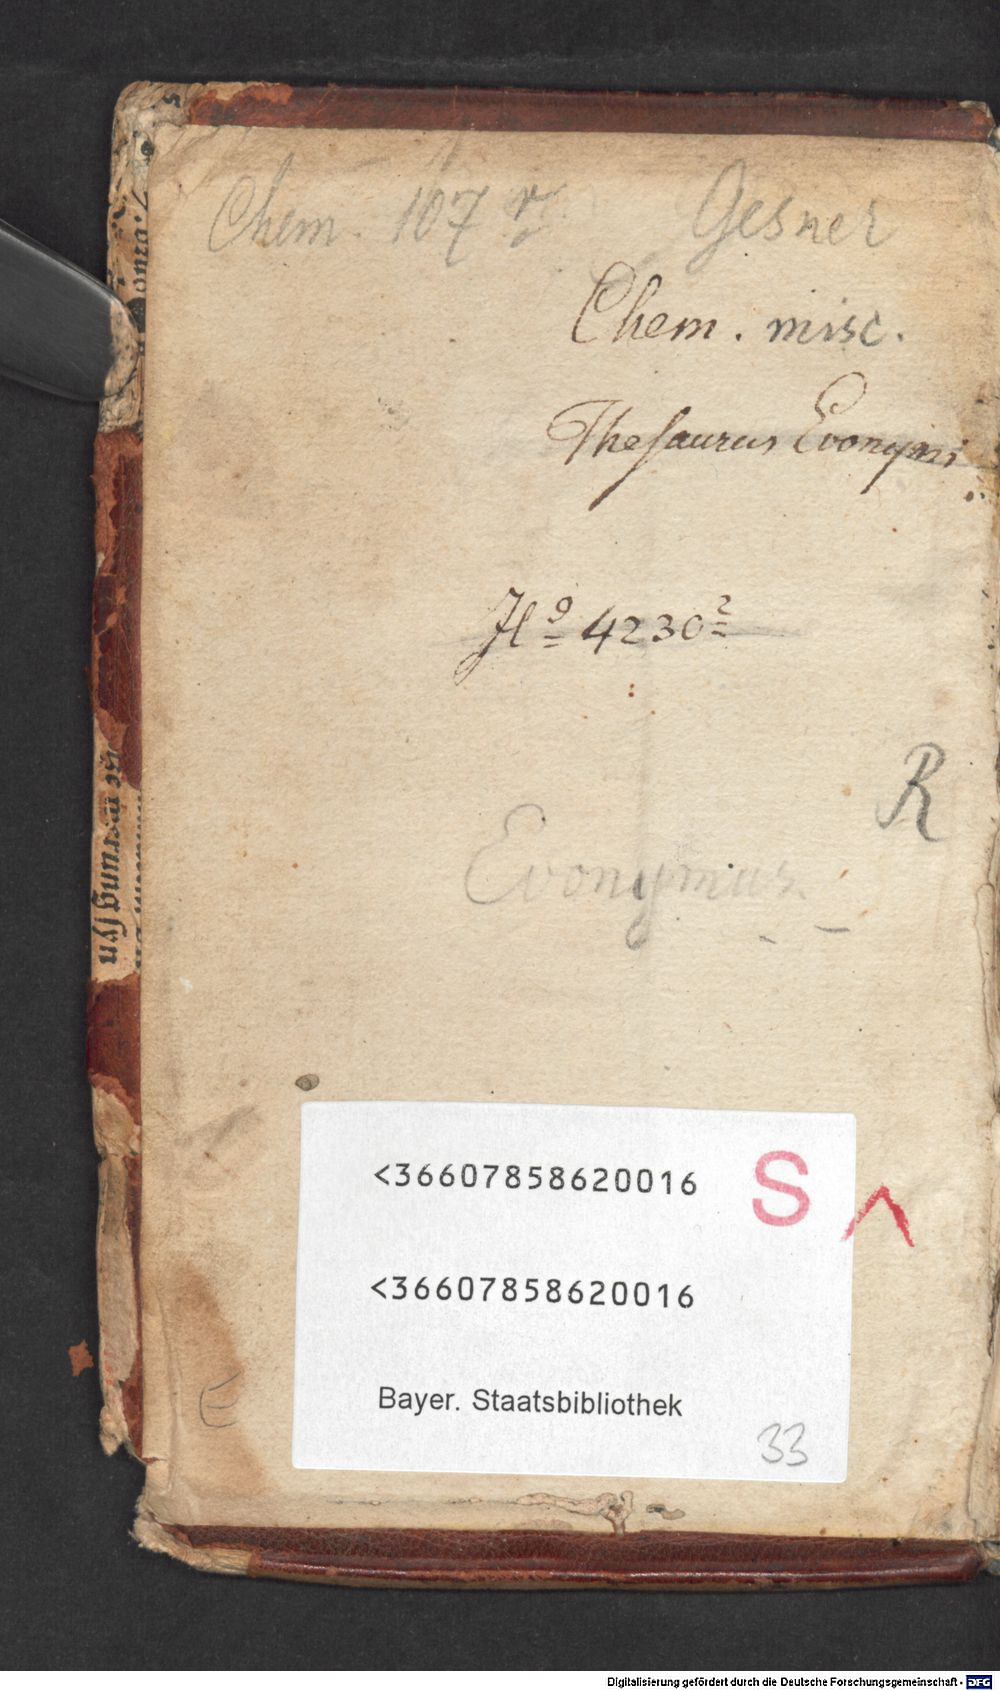 Chem. 107 r Gesner
Chem. misc.
Thesaurus Evonymi
No 4230 2
R
Evonymus.
<36607858620016
S
<36607858620016
Bayer. Staatsbibliothek
33
E
Digitalisierung gefördert durch die Deutsche Forschungsgemeinschaft - DFG